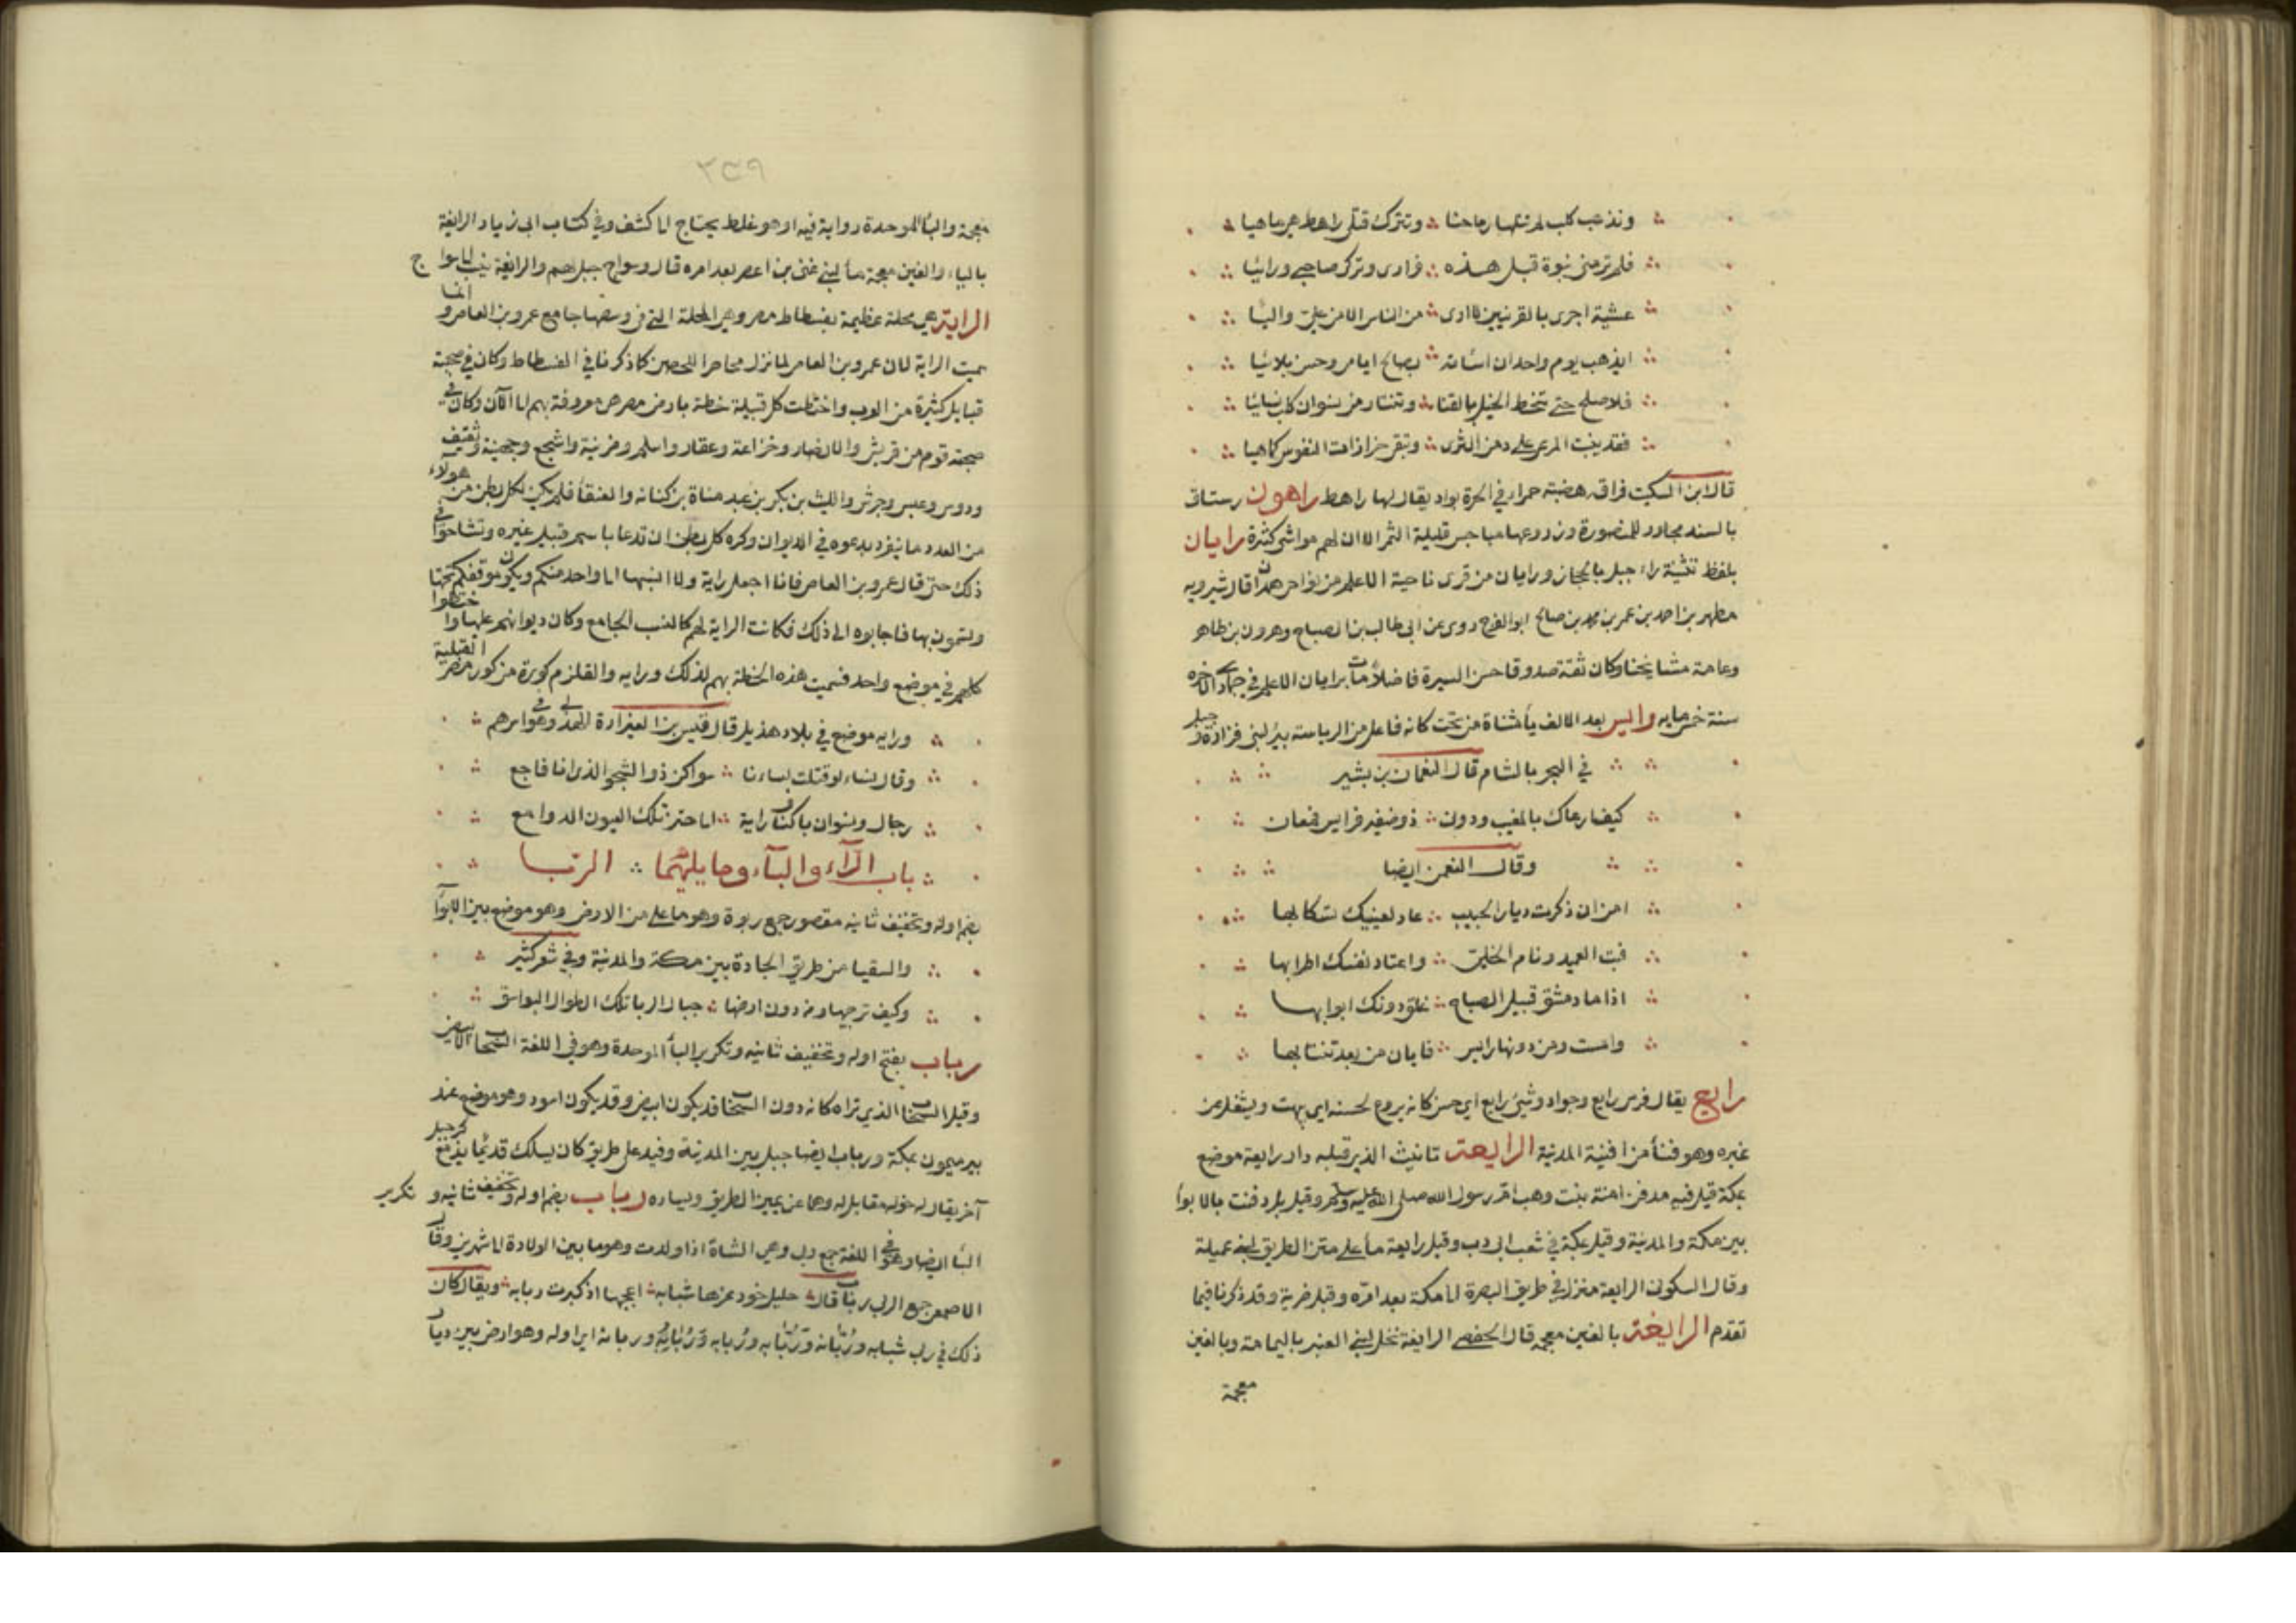 وتذهب كلب لم تنلها رماحنا وتترك قتلى راهط هي ماهيا
فلم ترمني نبوة قبل هذه فرادى وترك صاحبي ورائيا
عشية اجرى بالقرنيين لا ارى من الناس الا من علي ولا ليا
ايذهب يوم واحد ان اساته بصالح ايامي وحسن بلائيا
فلا صلح حتى تنحط الخيل بالقنا وتثار من نسوان كلب نسائيا
فقد ينبت المرعى على دمن الثرى وتبقى حزازات النفوس كما هيا
قال ابن السكيت فراق هضبة حمراء في الحرة بواد يقال لها راهط راهون رستاق
بالسند مجاور للمنصورة وزروعها مباخس قليلة الثمر الا ان لهم مواشي كثيرة رايان
بلفظ تثنية راء جبل بالحجاز ورايان من قرى ناحية الاعلم من نواحي همذان قال شيرويه
مطهر بن احمد بن عمر بن محمد بن صالح ابو الفرج روى عن ابي طالب بن الصباح وهرون بن طاهر
وعامة مشايخنا وكان ثقة صدوقا حسن السيرة فاضلا مات برايان الاعلم في جمادى الاخره
سنة خمسمايه رايس بعد الالف ياء مثناة من تحت كانه فاعل من الرياسة بئر لبني فزارة وجبل
في البحر بالشام قال النعمان بن بشير
كيف ارعاك بالمغيب ودون ذو ضفير فرايس فمعان
وقال النعمن ايضا
امن ان ذكرت ديار الحبيب عاد لعينيك تسكابها
فبت العميد ونام الخلي واعتاد نفسك اطرابها
اذا ما دمشق قبيل الصباح غلق دونك ابوابها
وامست ومن دونها رايس فايان من بعد تنتابها
رايع يقال فرس رايع وجواد وشيء رايع اي حسن كانه يروع لحسنه اي يبهت ويشغل عن
غيره وهو فناء من افنية المدينة الرايعة تانيث الذي قبله دار رايعة موضع
بمكة قيل فيه مدفن امنة بنت وهب ام رسول الله صلى الله عليه وسلم وقيل بل دفنت بالابواء
بين مكة والمدينة وقيل بمكة في شعب ابي دب وقيل رايعة ماء على متن الطريق لبني عميلة
وقال السكوني الرايعة منزل في طريق البصرة الى مكة بعد امره وقبل ضرية وقد ذكرنا فيما
تقدم الرايغة بالغين معجمه قال الحفصي الرايغة نخل لبني العنبر باليمامة وبالغين
معجمة
٣٤٩
معجمة والباء الموحدة رواية فيه او هو غلط يحتاج الى كشف وفي كتاب ابي زياد الرايغة
بالياء والغين معجمة ماء لبني غني بن اعصر بعد امره قال وسواج جبل لهم والرايغة بنب لسواج
الراية هي محلة عظيمة بفسطاط مصر وهي المحلة التي في وسطها جامع عمرو بن العاص وانما
سميت الراية لان عمرو بن العاص لما نزل محاصرا للحصن كما ذكرنا في الفسطاط وكان في صحبته
قبايل كثيرة من العرب واختطت كل قبيلة خطة بارض مصر هي معروفة بهم الى الآن وكان في
صحبته قوم من قريش والانصار وخزاعة وغفار واسلم ومزينة واشجع وجهينة وثقيف
ودوس وعبس وجرش والليث بن بكر بن عبد مناة بن كنانه والعتقاء فلم يكن لكل بطن من هولاء
من العدد ما ينفرد بدعوه في الديوان وكره كل بطن ان تدعا باسم قبيل غيره وتشاحوا في
ذلك حتى قال عمرو بن العاص فانا اجعل راية ولا انسبها الى واحد منكم ويكون موقفكم تحتها
وتسمون بها فاجابوه الى ذلك فكانت الراية لهم كالنسب الجامع وكان ديوانهم عليها واختطوا
كلهم في موضع واحد فسميت هذه الخطة بهم لذلك ورايه والقلزم كورة من كور مصر القبلية
ورايه موضع في بلاد هذيل قال قيس بن العيزارة الهذلي وهو في اسرهم
وقال نساء لو قتلت لساءنا سواكن ذو الشجو الذي انا فاجع
رجال ونسوان باكناف راية الى حثن تلك العيون الدوامع
باب الرآء والبآء وما يليهما الربا
بضم اوله وتخفيف ثانيه مقصور جمع ربوة وهو ما علي من الارض وهو موضع بين الابواء
والسقيا من طريق الجادة بين مكة والمدينة وفي شعر كثير
وكيف ترجيها ومن دون ارضها جبال الربا تلك الطوال البواسق
رباب بفتح اوله وتخفيف ثانيه وتكرير الباء الموحدة وهو في اللغة السحاب الابيض
وقيل السحاب الذي تراه كانه دون السحاب قد يكون ابيض وقد يكون اسود وهو موضع عند
بير ميمون بمكة ورباب ايضا جبل بين المدينة وفيد على طريق كان يسلك قديما يذكر مع جبل
آخر يقال له خوله مقابل له وهما عن يمين الطريق ويساره رباب بضم اوله وتخفيف ثانيه وتكرير
الباء ايضا وهو في اللغة جمع ربى وهي الشاة اذا ولدت وهو ما بين الولادة الى شهرين وقال
الاصمعي جمع الربى رباب قال حليل خود غرها شبابه اعجبها اذ كبرت ربابه ويقال كان
ذلك في ربى شبابه وربانه وربابه وربابه وربابه وربانه اي اوله وهو ارض بين ديار